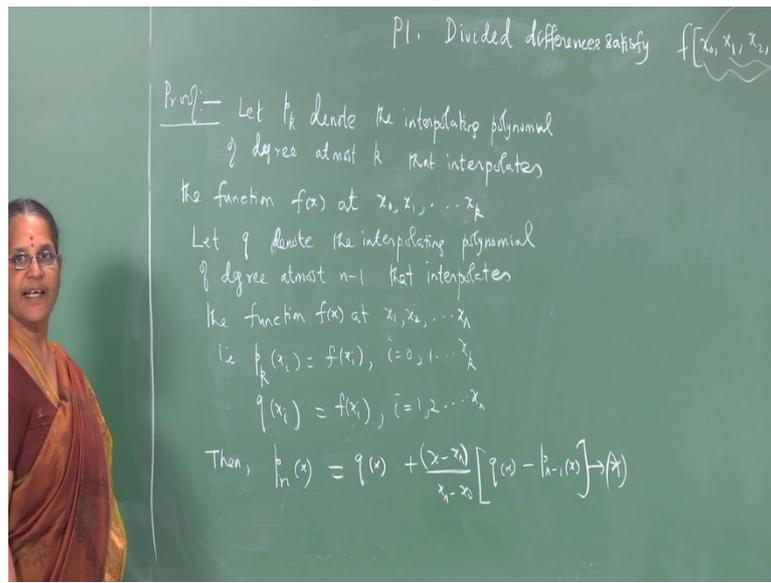 P1. Divided differences satisfy f[x₀, x₁, x₂,
Proof:- Let pₖ denote the interpolating polynomial
of degree atmost k that interpolates
the function f(x) at x₀, x₁, ... xₖ
Let q denote the interpolating polynomial
of degree atmost n-1 that interpolates
the function f(x) at x₁, x₂, ... xₙ
ie pₖ(xᵢ) = f(xᵢ), i=0, 1 ... xₖ
q(xᵢ) = f(xᵢ), i=1, 2 ... xₙ
Then, pₙ(x) = q(x) + (x-xₙ)/(xₙ-x₀) [q(x) - pₙ₋₁(x)] → (*)